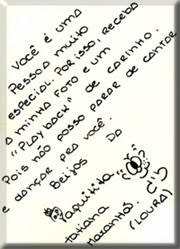 VOCÊ É UMA
PESSOA MUITO
ESPECIAL. POR ISSO, RECEBA
A MINHA FOTO E UM
"PLAYBACK" DE CARINHO.
POIS NÃO POSSO PARAR DE CANTAR
E DANÇAR PRA VOCÊ.
BEIJOS DA
PAQUITITA
TATIANA
MARANHÃO.
(LOURA)